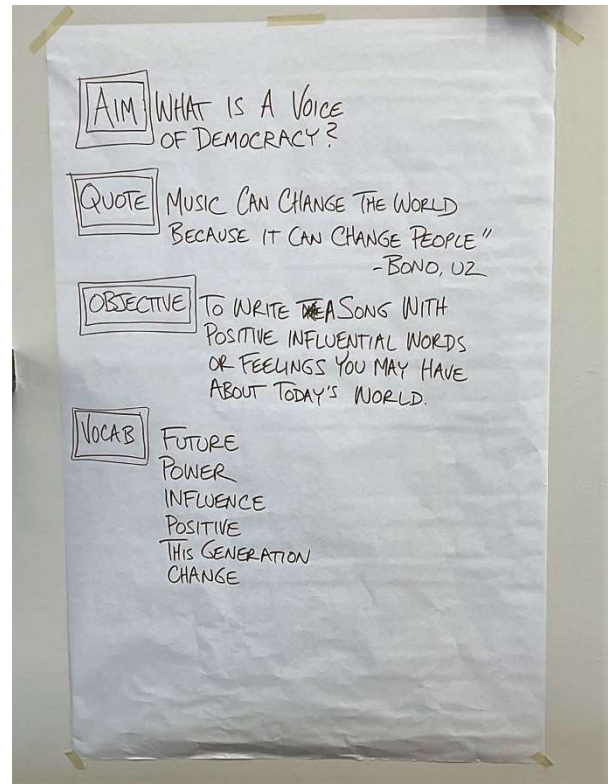 AIM WHAT IS A VOICE
OF DEMOCRACY?
QUOTE MUSIC CAN CHANGE THE WORLD
BECAUSE IT CAN CHANGE PEOPLE"
-BONO, U2
OBJECTIVE TO WRITE A SONG WITH
POSITIVE INFLUENTIAL WORDS
OR FEELINGS YOU MAY HAVE
ABOUT TODAY'S WORLD.
VOCAB FUTURE
POWER
INFLUENCE
POSITIVE
THIS GENERATION
CHANGE